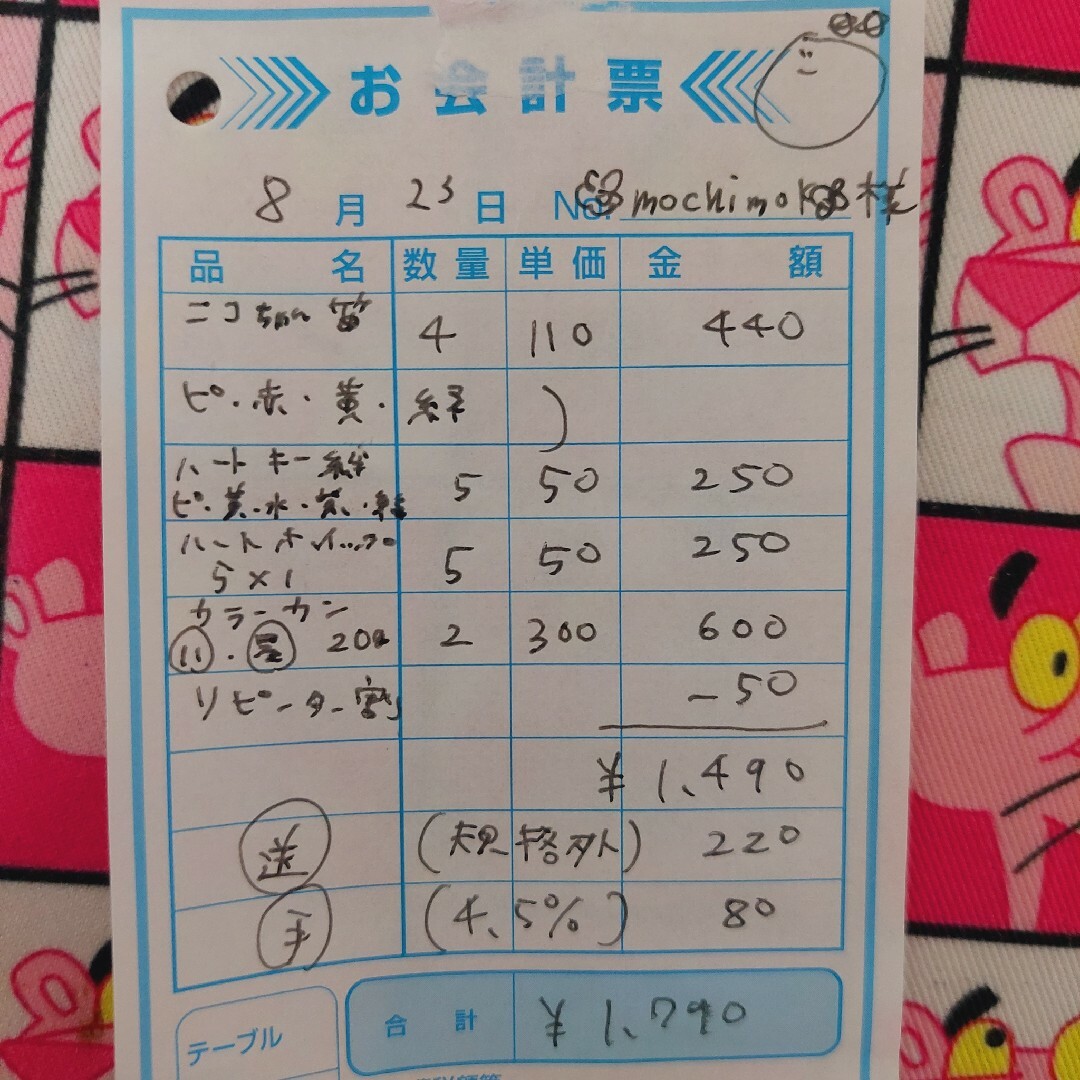 お会計票
8月23日 No. mochimo 様
品名 数量 単価 金額
ニコちゃん笛 4 110 440
ピ・赤・黄・緑 )
ハートキー 5 50 250
ピ・黄・水・紫・
ハートホイップ 5 50 250
5×1
カラーカン 2 300 600
リピーター割 -50
¥1,490
送 (規格外) 220
手 (4.5%) 80
合計 ¥1,790
テーブル